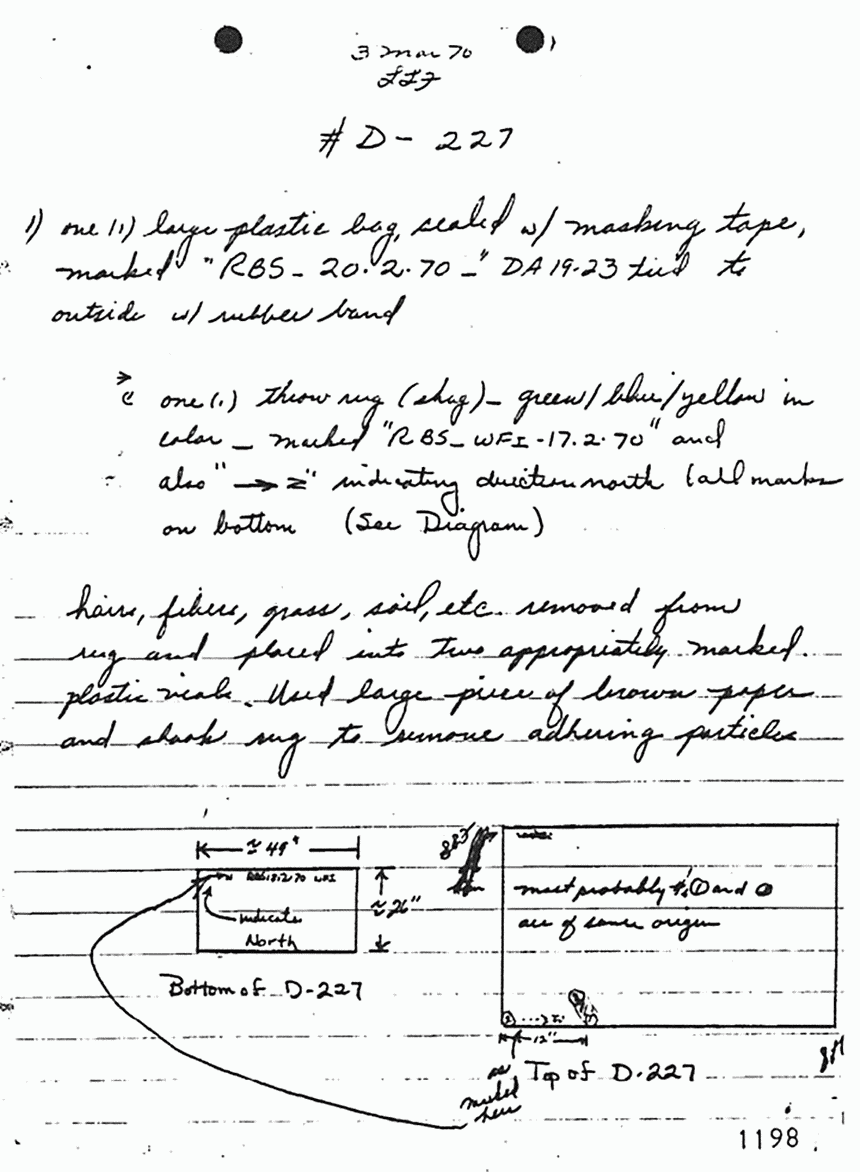 3 Mar 70
# D - 227
1) one (1) large plastic bag, sealed w/ masking tape,
marked "RBS - 20.2.70 -" DA 19-23 tied to
outside w/ rubber band
one (1) throw rug (shag) - green/blue/yellow in
color - marked "RBS - WFI - 17.2.70" and
also "→ Z" indicating direction north (all marks
on bottom (See Diagram)
hairs, fibers, grass, soil, etc. removed from
rug and placed into two appropriately marked
plastic vials. Used large piece of brown paper
and shook rug to remove adhering particles
≈ 49"
WFI
≈ 26"
indicates
North
Bottom of D-227
most probably #'s ① and
are of same origin
12"
as
marked
here
Top of D-227
1198